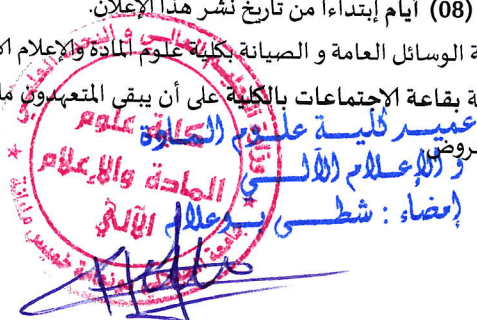 (08) أيام إبتداءا من تاريخ نشر هذا الإعلان.
ة الوسائل العامة و الصيانة بكلية علوم المادة والإعلام الآ
ة بقاعة الإجتماعات بالكلية على أن يبقى المتعهدون ما
عميد كلية علوم المادة
روض
و الإعلام الآلي
إمضاء : شطي بوعلام
كلية علوم
المادة والإعلام
الآلي